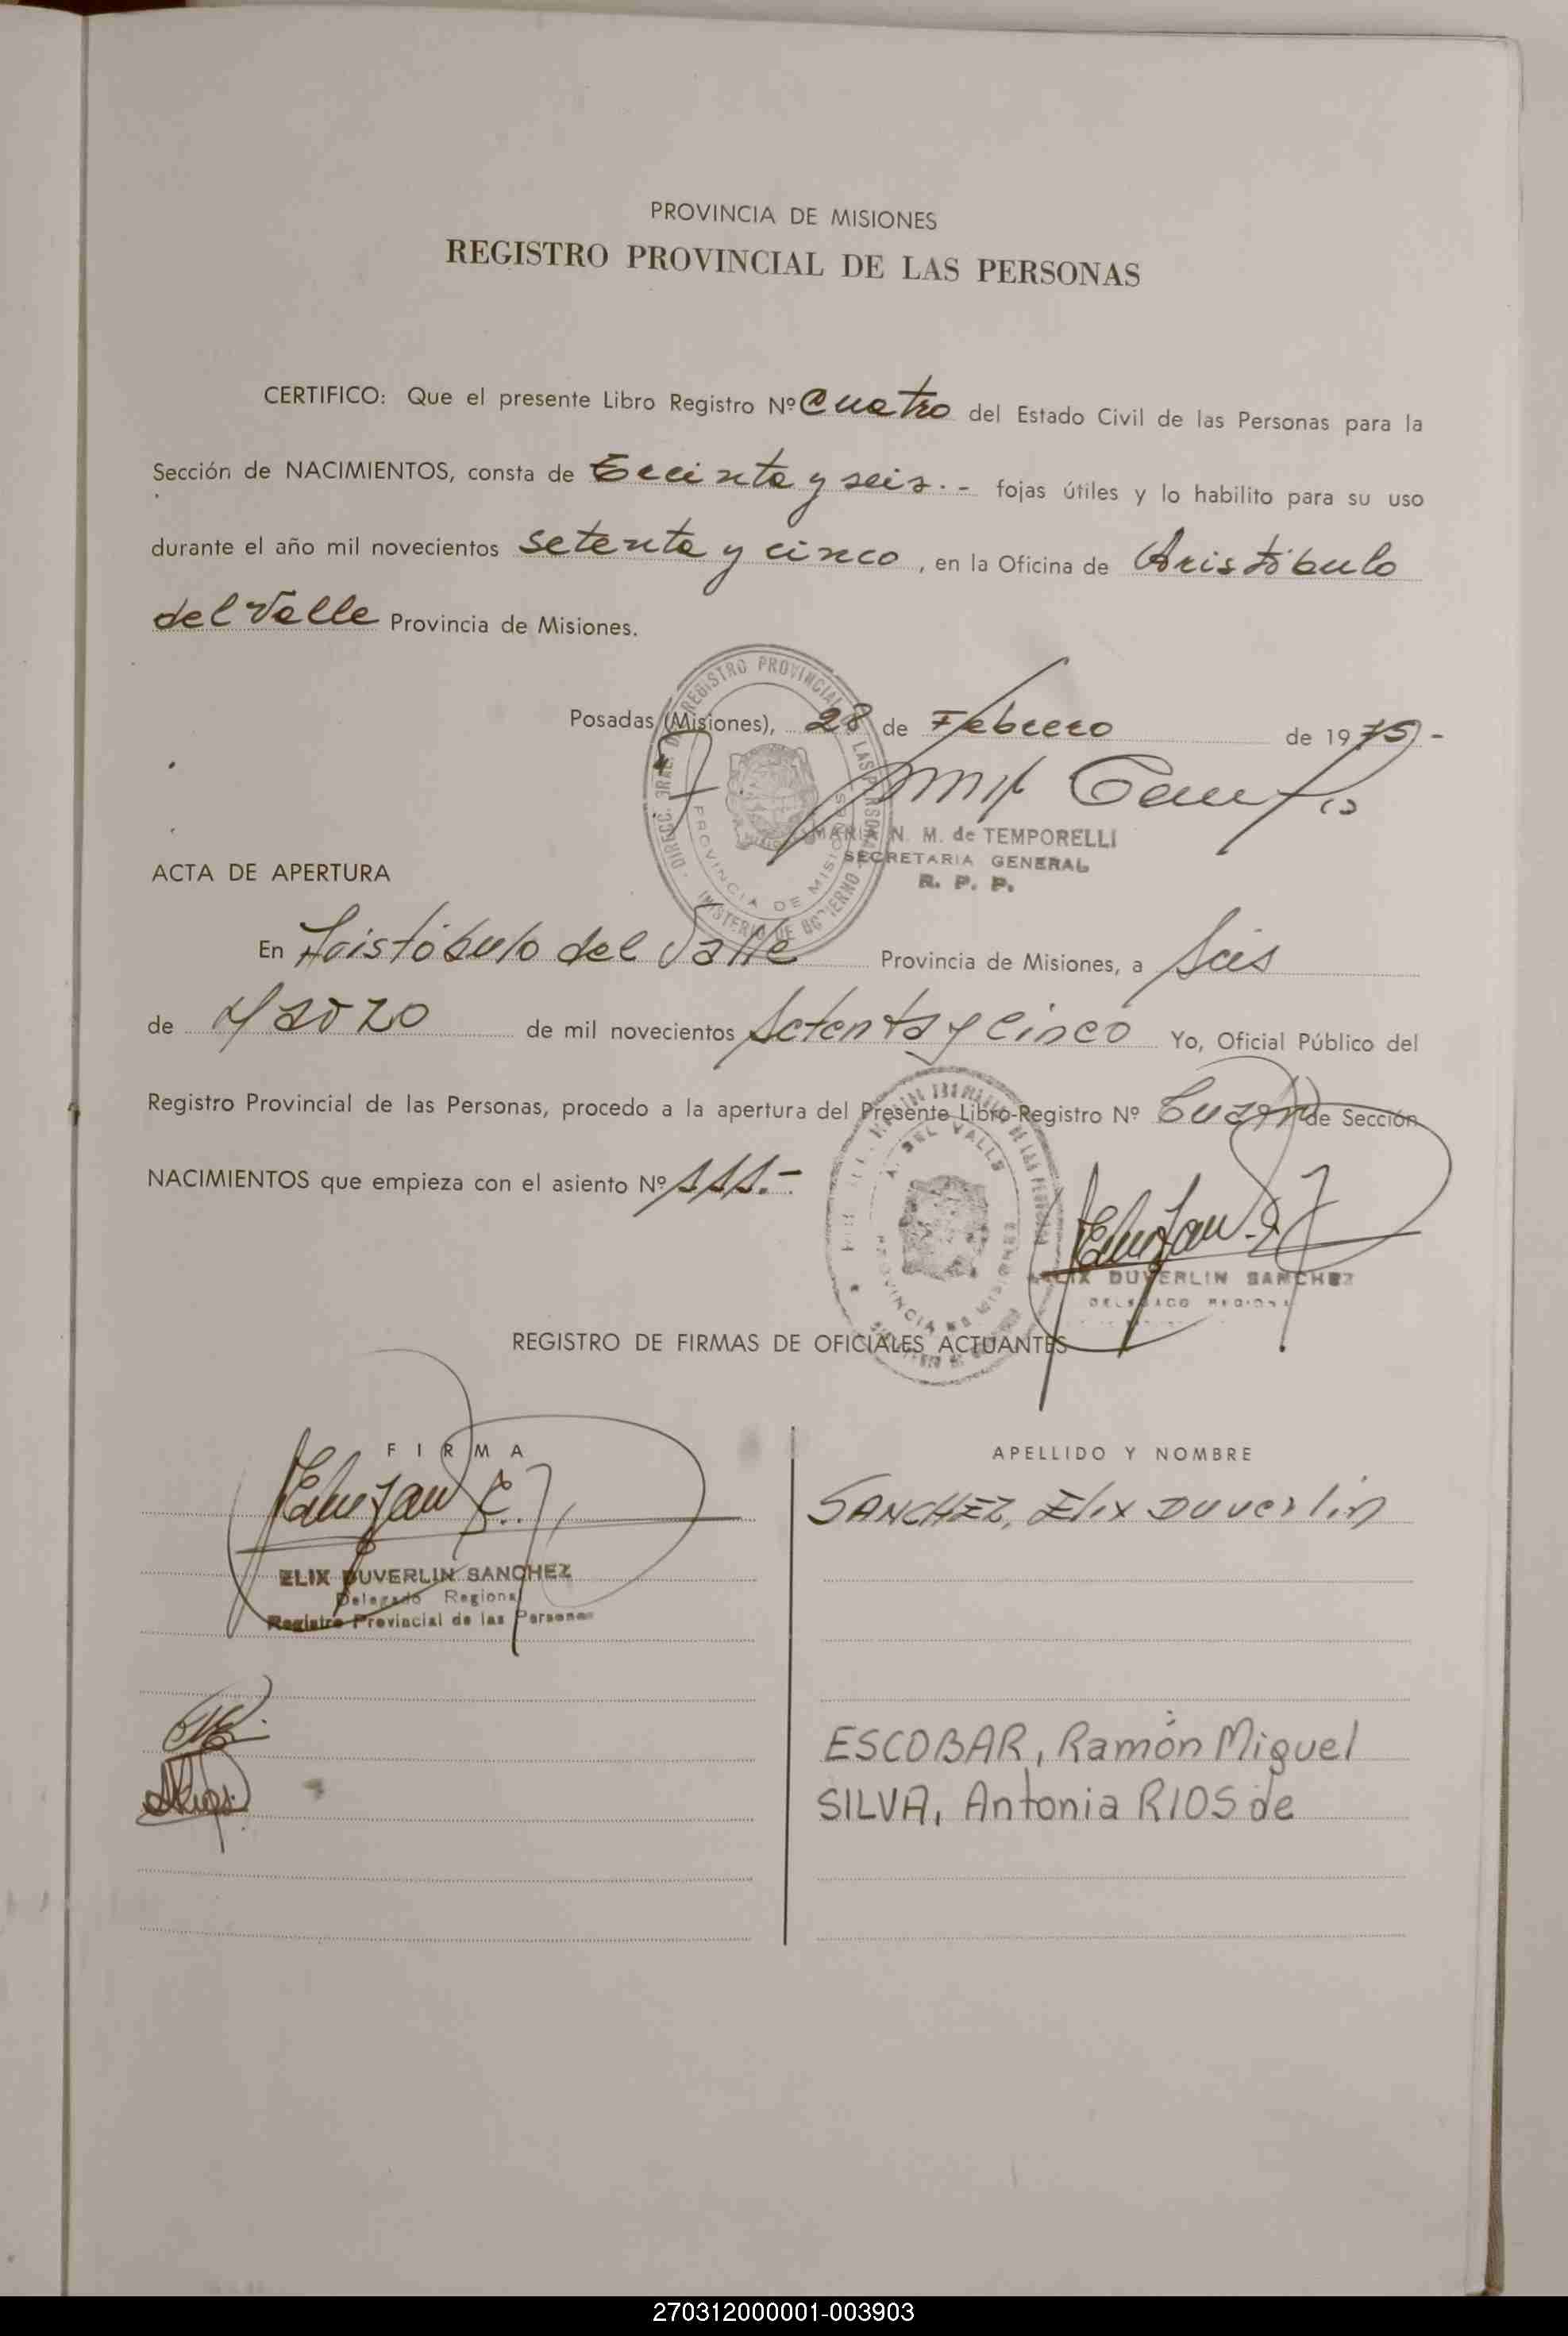 PROVINCIA DE MISIONES
REGISTRO PROVINCIAL DE LAS PERSONAS
CERTIFICO: Que el presente Libro Registro Nº Cuatro del Estado Civil de las Personas para la
Sección de NACIMIENTOS, consta de Treinta y seis.- fojas útiles y lo habilito para su uso
durante el año mil novecientos setenta y cinco, en la Oficina de Aristóbulo
del Valle Provincia de Misiones.
Posadas (Misiones), 28 de Febrero de 1975.-
MARIA N. M. de TEMPORELLI
SECRETARIA GENERAL
R. P. P.
ACTA DE APERTURA
En Aristóbulo del Valle Provincia de Misiones, a Seis
de Marzo de mil novecientos Setenta y Cinco Yo, Oficial Público del
Registro Provincial de las Personas, procedo a la apertura del Presente Libro-Registro Nº de Sección
NACIMIENTOS que empieza con el asiento Nº 111.-
ELIX DUVERLIN SANCHEZ
DELEGADO REGIONAL
REGISTRO DE FIRMAS DE OFICIALES ACTUANTES
FIRMA
APELLIDO Y NOMBRE
SANCHEZ, Elix Duverlin
ELIX DUVERLIN SANCHEZ
Delegado Regional
Registro Provincial de las Personas
ESCOBAR, Ramón Miguel
SILVA, Antonia RIOS de
270312000001-003903